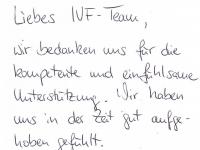 Liebes IVF-Team,
wir bedanken uns für die
kompetente und einfühlsame
Unterstützung. Wir haben
uns in der Zeit gut aufge-
hoben gefühlt.